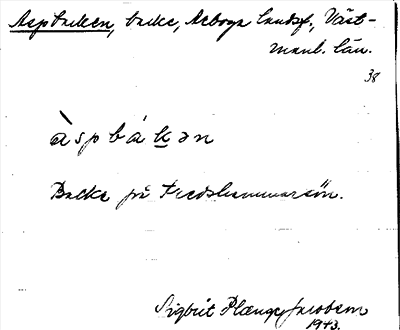 Aspbacken, backe, Arboga landsf., Väst-
manl. län.
38
àspbákən
Backe på Fredshammarsön.
Sigbrit Plænge Jacobson
1943.